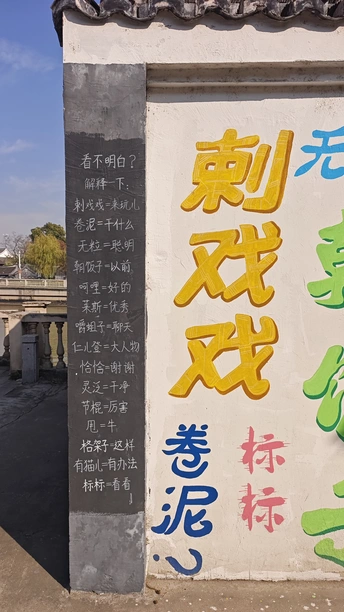 看不明白?
解释一下:
刺戏戏=来玩儿
卷泥=干什么
无粒=聪明
朝饭子=以前
呵哩=好的
莱斯=优秀
嚼蛆子=聊天
仁儿登=大人物
恰恰=谢谢
灵泛=干净
节棍=厉害
甩=牛
格架子=这样
有猫儿=有办法
标标=看看
刺戏戏
卷泥?
标标
无